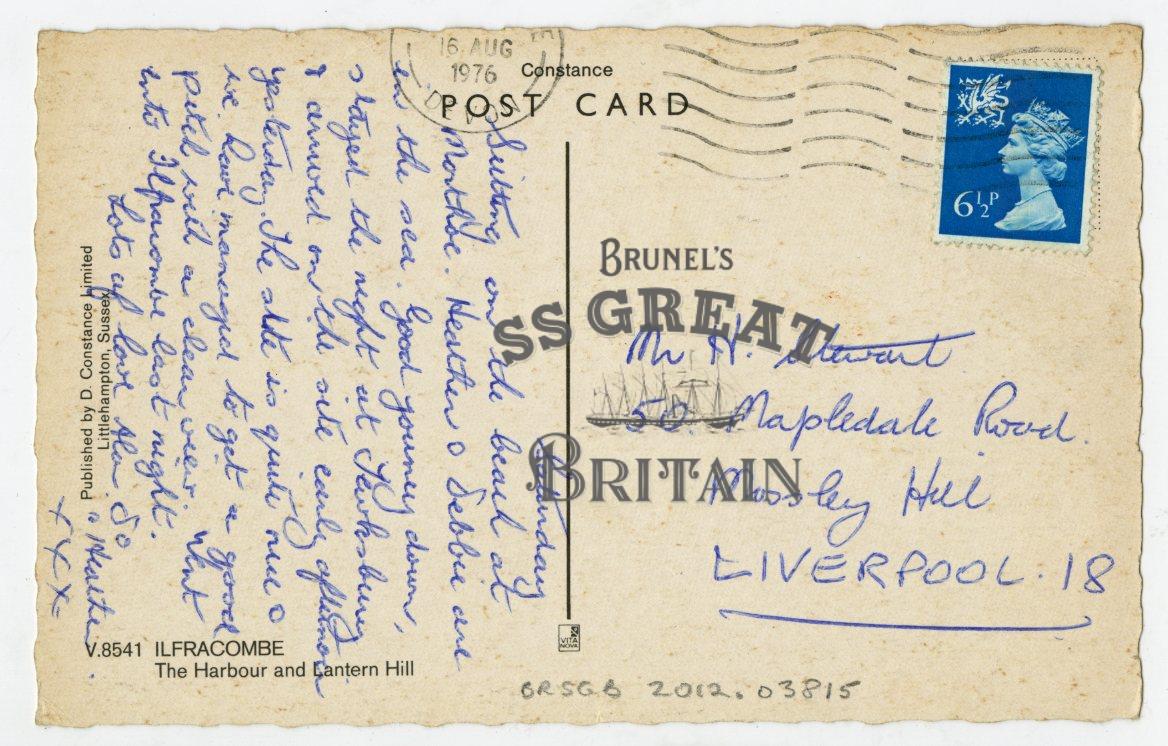 16. AUG
1976
Constance
POST CARD
6½P
BRUNEL'S
SS GREAT
BRITAIN
Mr H. Stewart
50. Mapledale Road.
Mossley Hill
LIVERPOOL. 18
Sitting on the beach at
Heather & Debbie are
in the sea. Good journey down,
stayed the night at Tewksbury
& arrived on the site early afternoon
yesterday. The site is quite nice &
we have managed to get a good
pitch with a clear view. Went
into Ilfracombe last night.
Lots of love
& Heather.
XXX
Published by D. Constance Limited
Littlehampton, Sussex
V.8541 ILFRACOMBE
The Harbour and Lantern Hill
VITA
NOVA
BRSGB 2012.03815